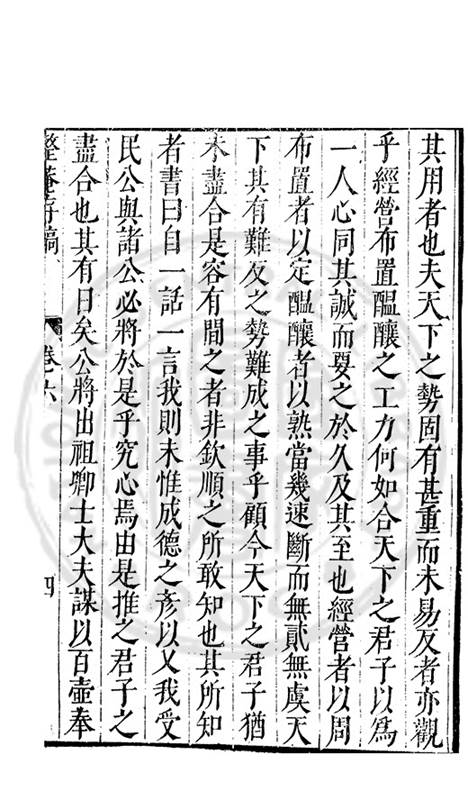 其用者也夫天下之勢固有甚重而未易反者亦觀
乎經營布置醞釀之工力何如合天下之君子以爲
一人心同其誠而要之於久及其至也經營者以周
布置者以定醞釀者以熟當幾速斷而無貳無虞天
下其有難反之勢難成之事乎顧今天下之君子猶
未盡合是容有間之者非欽順之所敢知也其所知
者書曰自一話一言我則末惟成德之彥以乂我受
民公與諸公必將於是乎究心焉由是推之君子之
盡合也其有日矣公將出祖卿士大夫謀以百壺奉
整庵存稿 卷六 四